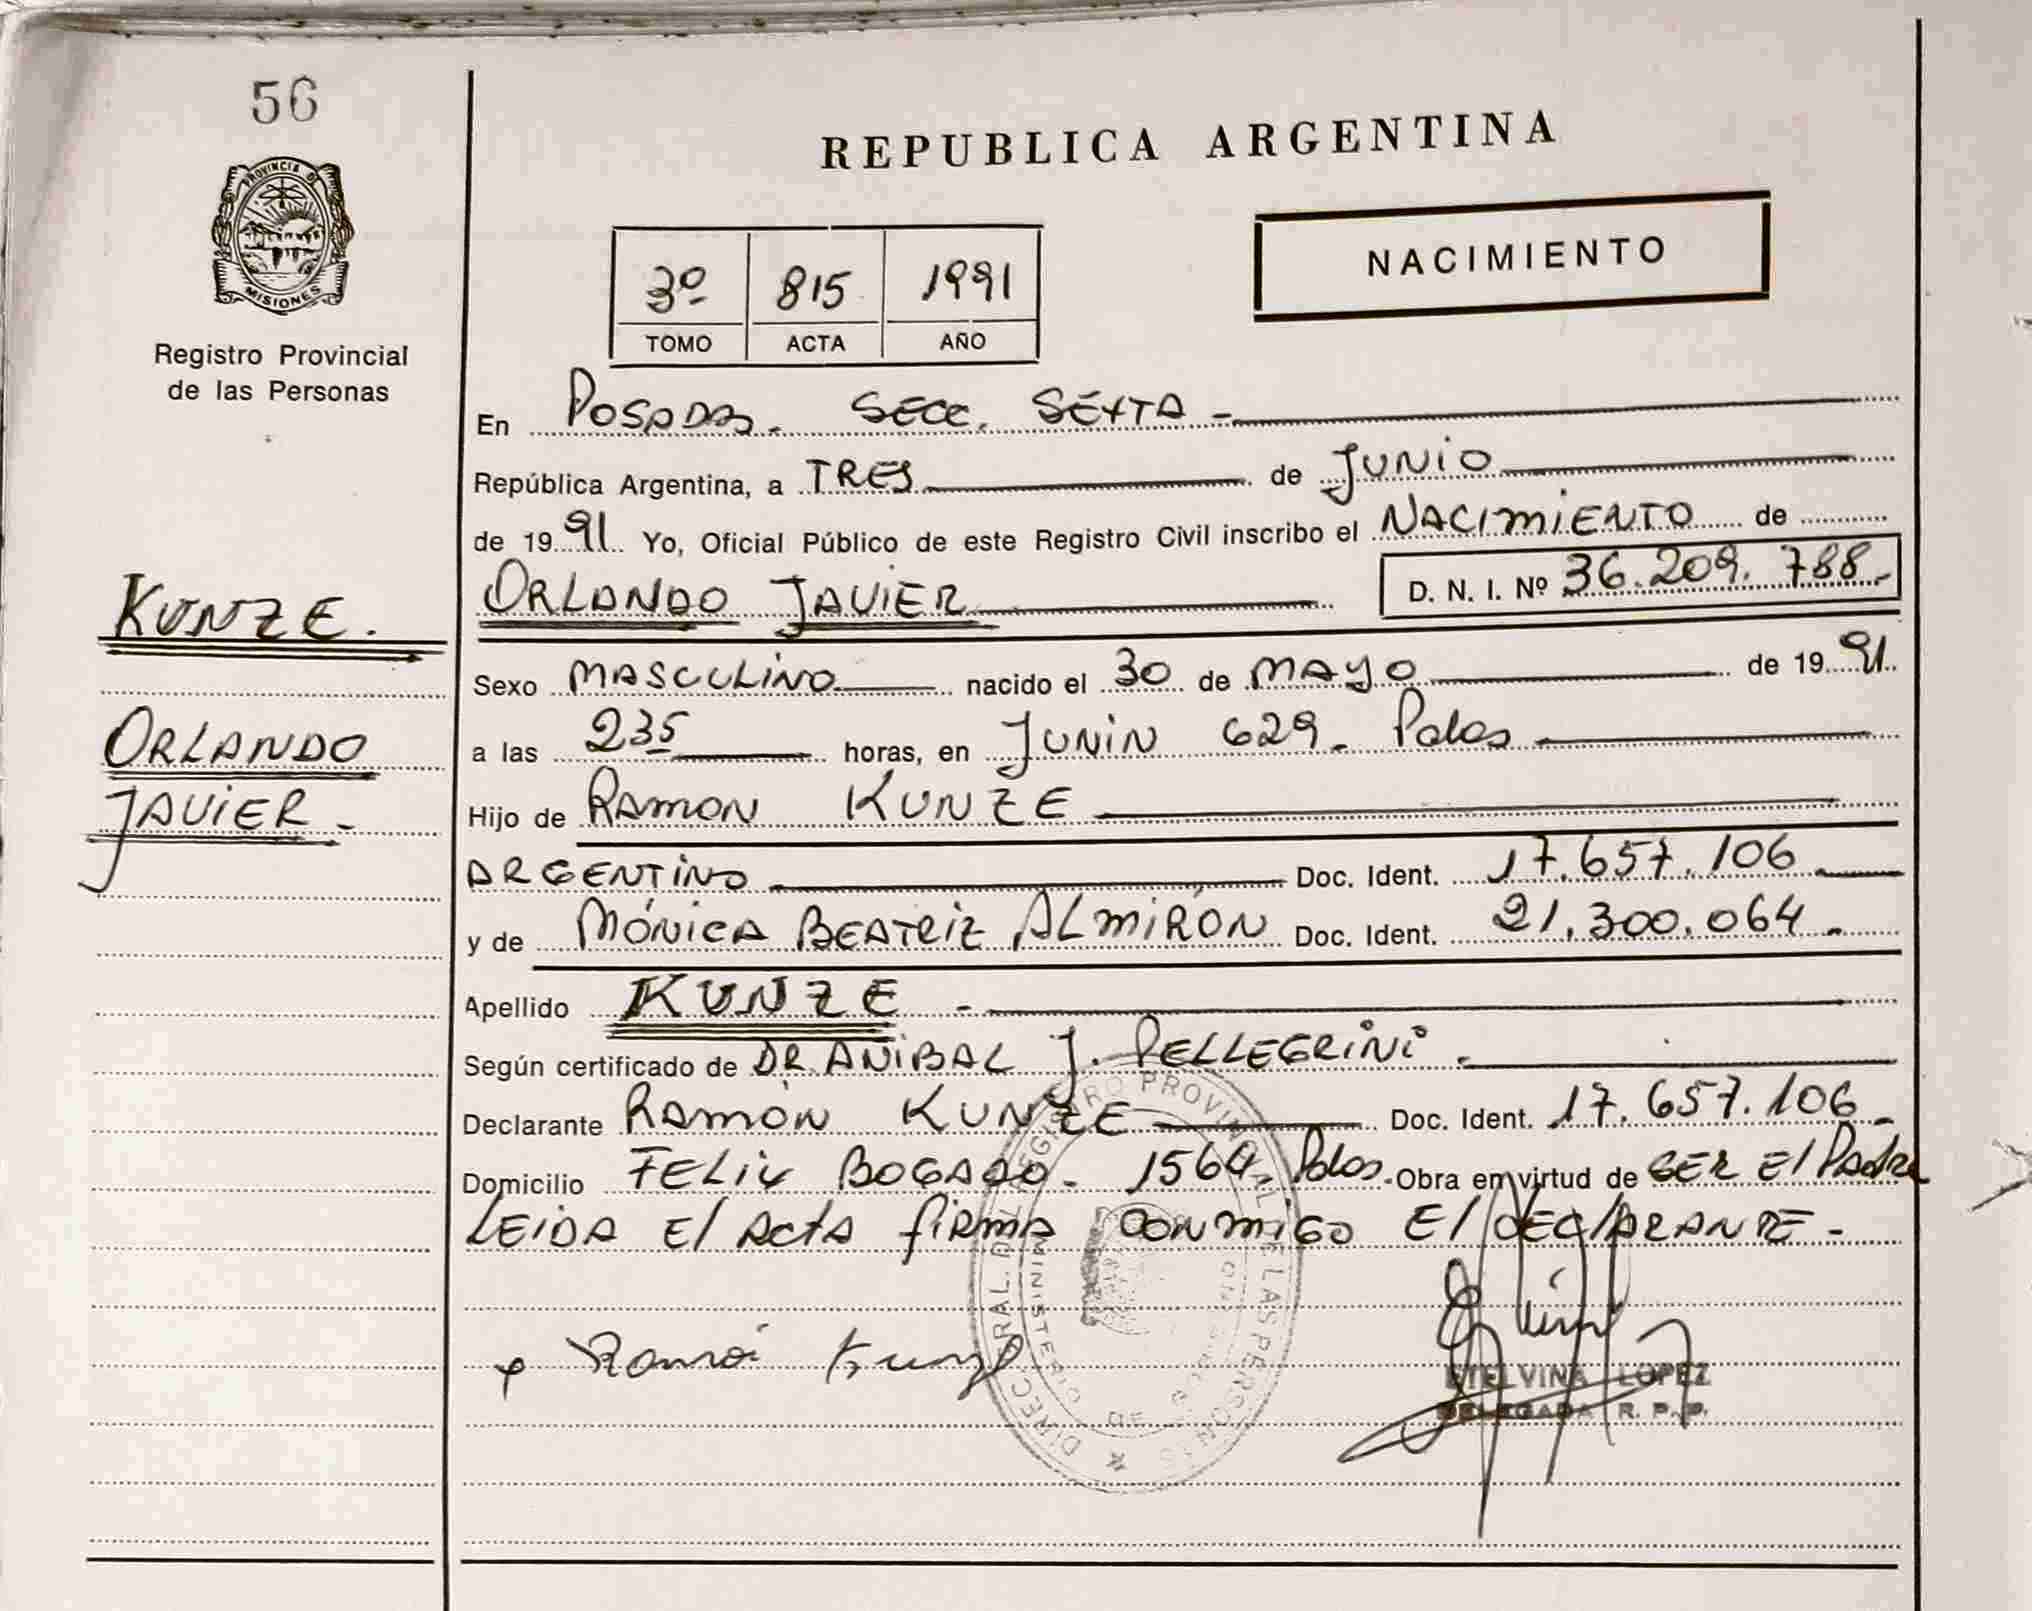 56
PROVINCIA D
MISIONES
Registro Provincial
de las Personas
REPUBLICA ARGENTINA
3º 815 1991
TOMO ACTA AÑO
NACIMIENTO
En POSADAS. SECC. SEXTA -
República Argentina, a TRES de JUNIO
de 1991 Yo, Oficial Público de este Registro Civil inscribo el NACIMIENTO de
ORLANDO JAVIER D. N. I. Nº 36.209.788.-
KUNZE.
Sexo MASCULINO nacido el 30 de MAYO de 1991
ORLANDO
a las 235 horas, en JUNIN 629. Pdas
JAVIER -
Hijo de RAMON KUNZE
ARGENTINO Doc. Ident. 17.657.106
y de MÓNICA BEATRIZ ALMIRÓN Doc. Ident. 21.300.064 -
Apellido KUNZE -
Según certificado de DR ANIBAL J. PELLEGRINI.
Declarante RAMÓN KUNZE Doc. Ident. 17.657.106 -
Domicilio FELIX BOGADO. 1564. Pdas. Obra en virtud de SER El Padre
LEIDA El ActA firma conmigo El DEClARANTE -
Ramón Kunze
ETELVINA LOPEZ
DELEGADA R. P. P.
DIREC. GRAL. DEL REGISTRO PROVINCIAL DE LAS PERSONAS
MINISTERIO DE